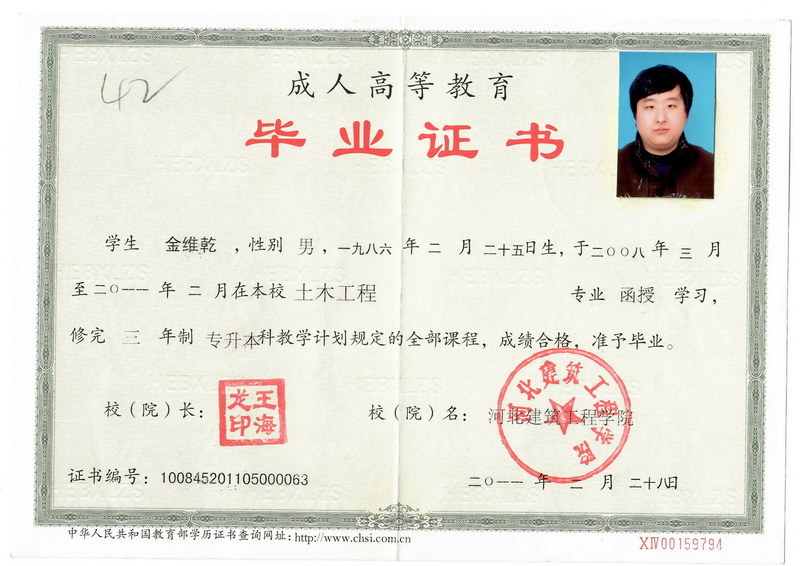 42
成人高等教育
毕业证书
学生 金维乾 ,性别 男,一九八六 年 二 月 二十五日生,于二〇〇八 年 三 月
至二〇一一 年 二 月在本校 土木工程 专业 函授 学习,
修完 三 年制 专升本科教学计划规定的全部课程,成绩合格,准予毕业。
校(院)长: 王海龙印 校(院)名: 河北建筑工程学院
河北建筑工程学院
证书编号:100845201105000063 二〇一一 年 二 月 二十八日
中华人民共和国教育部学历证书查询网址:http://www.chsi.com.cn
XIV00159794
HEBXLZS